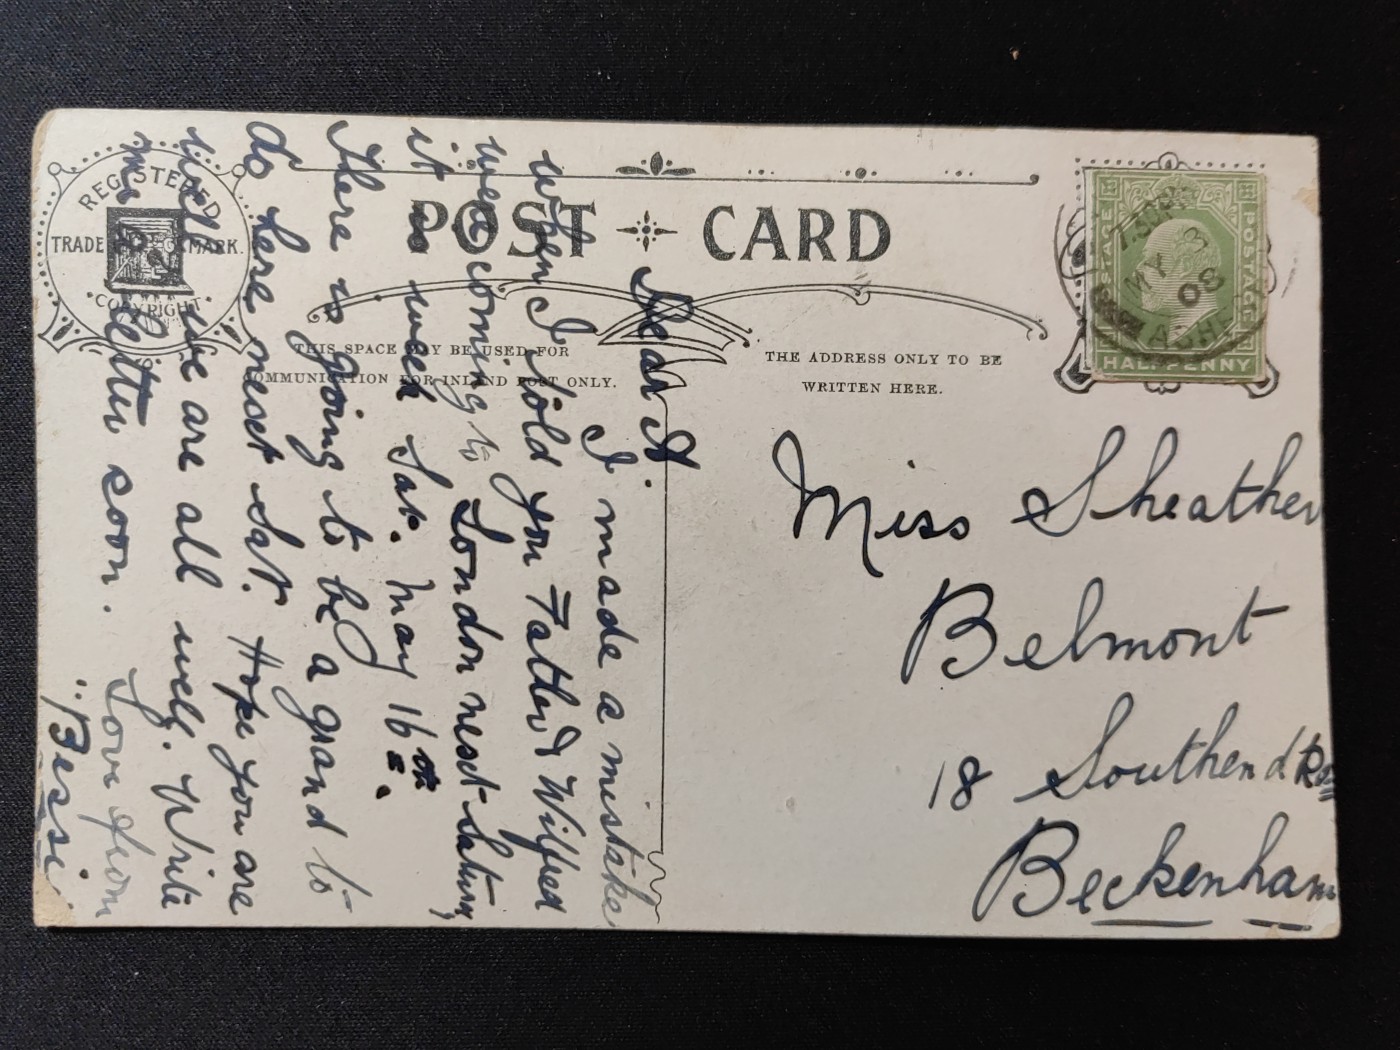 POST CARD
REGISTERED
TRADE MARK.
COPYRIGHT
THIS SPACE MAY BE USED FOR
COMMUNICATION FOR INLAND POST ONLY.
THE ADDRESS ONLY TO BE
WRITTEN HERE.
POSTAGE
HALFPENNY
7.30PM
MY 3
08
Dear A.
I made a mistake
when I told you Father & Wilfred
were coming to London next Saturn,
it is week Sat. May 16th.
There is going to be a grand to
do here next Sat. Hope you are
well we are all well. Write
me a letter soon. Love from
"Bessi
Miss Sheather
Belmont
18 Southend Rd
Beckenham